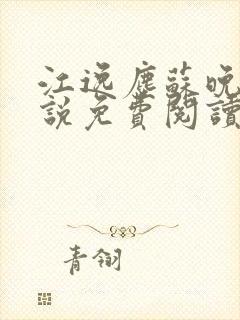 江逸塵蘇晚
說免費閱讀
青翎